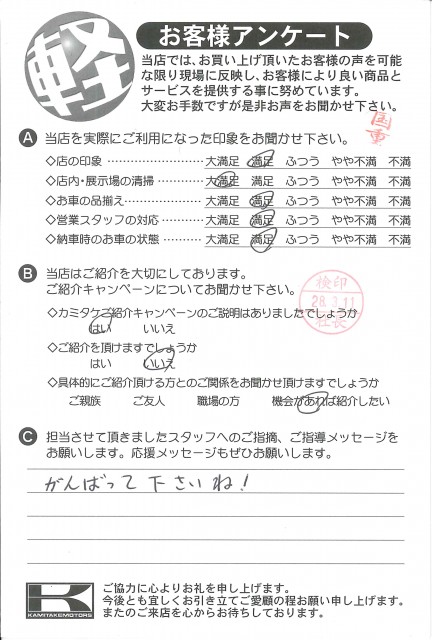 軽
お客様アンケート
当店では、お買い上げ頂いたお客様の声を可能
な限り現場に反映し、お客様により良い商品と
サービスを提供する事に努めています。
大変お手数ですが是非お声をお聞かせ下さい。
A 当店を実際にご利用になった印象をお聞かせ下さい。
◇店の印象 ………………… 大満足 満足 ふつう やや不満 不満
◇店内・展示場の清掃 ……… 大満足 満足 ふつう やや不満 不満
◇お車の品揃え……………… 大満足 満足 ふつう やや不満 不満
◇営業スタッフの対応 ……… 大満足 満足 ふつう やや不満 不満
◇納車時のお車の状態 ……… 大満足 満足 ふつう やや不満 不満
B 当店はご紹介を大切にしております。
ご紹介キャンペーンについてお聞かせ下さい。
検印
28.3.11
社長
◇カミタケご紹介キャンペーンのご説明はありましたでしょうか
はい いいえ
◇ご紹介を頂けますでしょうか
はい いいえ
◇具体的にご紹介頂ける方とのご関係をお聞かせ頂けますでしょうか
ご親族 ご友人 職場の方 機会があれば紹介したい
C 担当させて頂きましたスタッフへのご指摘、ご指導メッセージを
お願いします。応援メッセージもぜひお願いします。
がんばって下さいね!
K
KAMITAKEMOTORS
ご協力に心よりお礼を申し上げます。
今後とも宜しくお引き立てご愛顧の程お願い申し上げます。
またのご来店を心からお待ちしております。